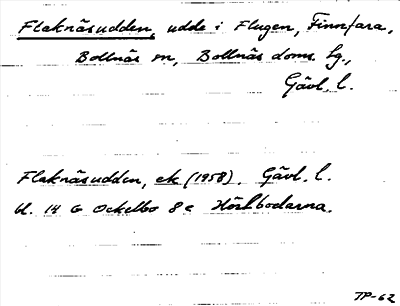 Flaknäsudden, udde i Flugen, Finnfara,
Bollnäs sn, Bollnäs doms. tg.,
Gävl. l.
Flaknäsudden, ek (1958). Gävl. l.
bl. 14 G Ockelbo 8 e Hästbodarna.
TP-62